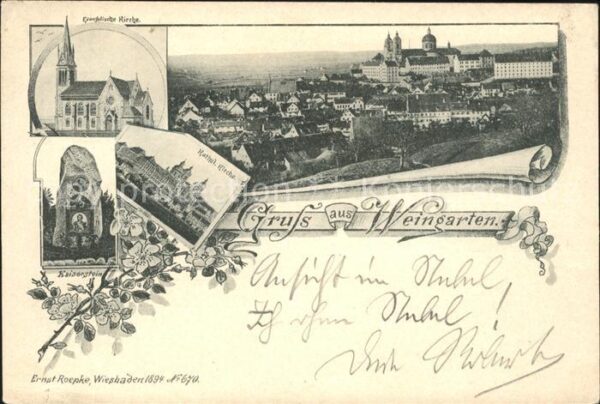 Evangelische Kirche.
Kathol. Kirche.
Kaiserstein
Gruss aus Weingarten.
Ansicht im Nebel,
Ich ohne Nebel!
Dein
Ernst Roepke, Wiesbaden 1894 No 670.